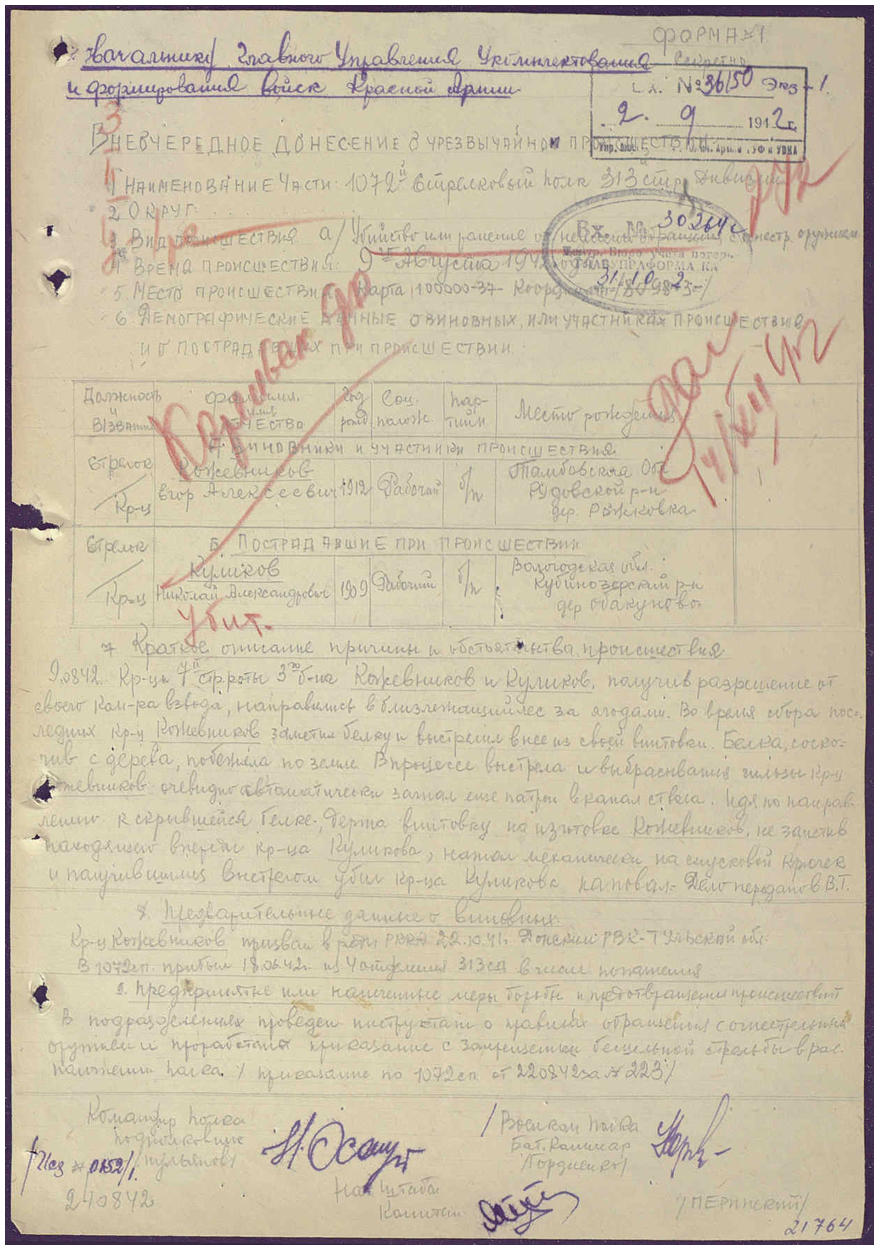 ФОРМА №1
Секретно
Начальнику Главного Управления Укомплектования
и формирования войск Красной Армии
Вх. № 36150 Экз-1.
2. 9 1942 г.
Внеочередное донесение о чрезвычайном происшествии
1 Наименование части: 1072й стрелковый полк 313 стр. дивизии
2 Округ
3. Вид происшествия а/ Убийство или ранение от неосторожного обращения с огнестр. оружием
Вх. № 30264с
4. Время происшествия. 9го Августа 1942
31 10 2
5. Место происшествия Карта 100000-37- Коорд
6. Демографические данные о виновных, или участниках происшествия
и о пострадавших при происшествии.
14/XII 42
Должность и звание фамилия имя отчество год рожд Соц. полож. партийн Место рождения
А Виновники и участники происшествия
Стрелок / Кр-ц Кожевников Егор Алексеевич 1912 Рабочий б/п Тамбовская Обл Рудовской р-н дер. Рожковка
Б Пострадавшие при происшествии
Стрелок / Кр-ц Куликов Николай Александрович 1909 Рабочий б/п Вологодская обл. Кубинозерский р-н дер Обакуново
Убит.
7 Краткое описание причины и обстоятельства происшествия
9.0842. Кр-цы 7й стр.роты 3го б-на Кожевников и Куликов, получив разрешение от
своего ком-ка взвода, направились в близлежащий лес за ягодами. Во время сбора пос-
ледних Кр-ц Кожевников заметил белку и выстрелил в нее из своей винтовки. Белка, соско-
чив с дерева, побежала по земле В процессе выстрела и выбрасывания гильзы Кр-ц
Кожевников очевидно автоматически загнал еще патрон в канал ствола. Идя по направ-
лению к скрившейся белке, держа винтовку на изготовке Кожевников, не заметив
находящего впереди кр-ца Куликова, нажал механически на спусковой крючек
и получившимся выстрелом убил кр-ца Куликова наповал. Дело передано в В.Т.
8. Предварительные данные о виновных.
Кр-ц Кожевников призван в ряды РККА 22.10.41. Донским РВК-Тульской обл.
В 1072сп. прибыл 18.06.42г. из 313сд в числе пополнения
9. Предпринятые или намеченные меры борьбы и предотвращения происшествий
В подразделениях проведен инструктаж о правилах обращения с огнестрельным
оружием и проработано приказание с запрещением бесцельной стрельбы в рас-
положении полка / приказание по 1072сп. от 220842 за № 223/
Командир полка
подполковник
/Военком полка
Бат. Комиссар
/Гордиенко/
/Исх № 0152/
240842
Нач штаба
Капитан
/ПЕРИНСКИЙ/
21764